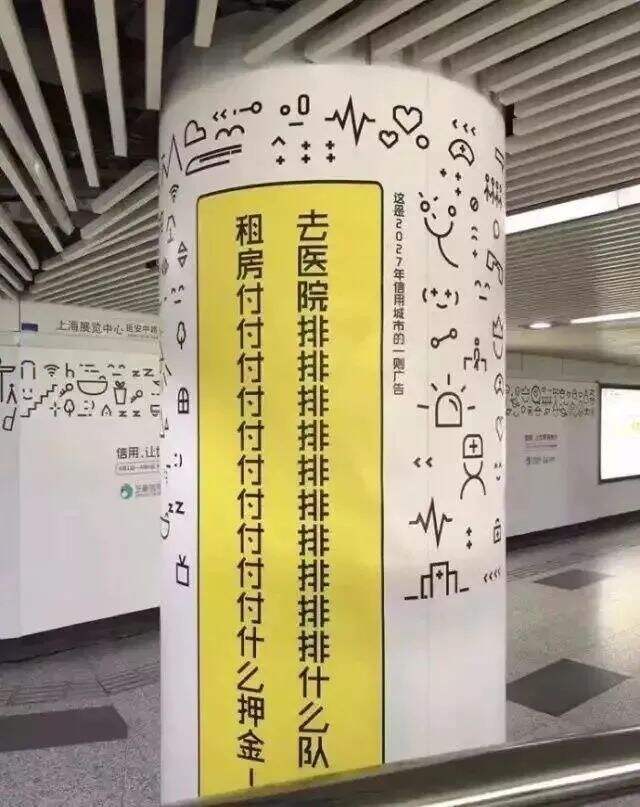 这是2027年信用城市的一则广告
去医院排排排排排排排排排排什么队
租房付付付付付付付付付付什么押金!
上海展览中心
信用,让